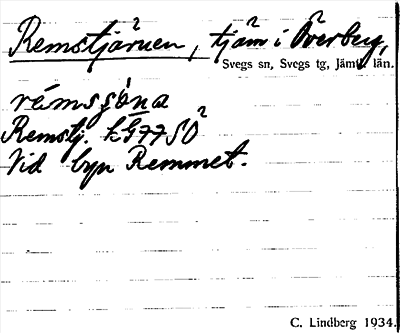 Remstjärnen, tjärn i Överberg,
Svegs sn, Svegs tg, Jämtl. län.
rémsşo̊na
Remstj. kG77SO²
Vid byn Remmet.
C. Lindberg 1934.